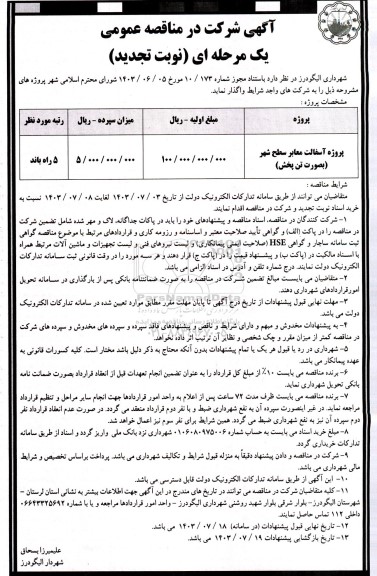 آگهی شرکت در مناقصه عمومی
یک مرحله ای (نوبت تجدید)
شهرداری الیگودرز در نظر دارد باستناد مجوز شماره ۱۷۳ / ۱۰ مورخ ۰۵ / ۰۶ / ۱۴۰۳ شورای محترم اسلامی شهر پروژه های
مشروحه ذیل را به شرکت های واجد شرایط واگذار نماید.
مشخصات پروژه :
پروژه مبلغ اولیه - ریال میزان سپرده - ریال رتبه مورد نظر
پروژه آسفالت معابر سطح شهر
(بصورت تن پخش) ۱۰۰/۰۰۰/۰۰۰/۰۰۰ ۵/۰۰۰/۰۰۰/۰۰۰ ۵ راه باند
شرایط مناقصه :
متقاضیان می توانند از طریق سامانه تدارکات الکترونیک دولت از تاریخ ۰۳ / ۰۷ / ۱۴۰۳ لغایت ۰۸ / ۰۷ / ۱۴۰۳ نسبت به
خرید اسناد نوبت تجدید و شرکت در مناقصه اقدام نمایند.
۱- شرکت کنندگان در مناقصه، اسناد مناقصه و پیشنهادهای خود را باید در پاکات جداگانه، لاک و مهر شده شامل تضمین شرکت
در مناقصه را در پاکت (الف) و گواهی تأیید صلاحیت معتبر و اساسنامه و رزومه کاری و قراردادهای مرتبط با موضوع مناقصه گواهی
ثبت سامانه ساجار و گواهی HSE (صلاحیت ایمنی پیمانکاری) و لیست نیروهای فنی و لیست تجهیزات و ماشین آلات مرتبط همراه
با اسناد مالکیت در (پاکت ب) و پیشنهاد قیمت را در (پاکت ج) قرار دهند و هر سه مورد را در وقت قانونی ثبت سامانه تدارکات
الکترونیک دولت نمایند. درج شماره تلفن و آدرس در اسناد الزامی می باشد.
۲- متقاضیان می بایست مبالغ تضمین شرکت در مناقصه را به صورت ضمانتنامه بانکی پس از بارگذاری در سامانه تحویل
امورقراردادهای شهرداری دهند.
۳- مهلت نهایی قبول پیشنهادات از تاریخ درج آگهی تا پایان مهلت مقرر مطابق موارد تعیین شده در سامانه تدارکات الکترونیک
دولت می باشد.
۴- به پیشنهادات مخدوش و مبهم و دارای شرایط و ناقص و پیشنهادهای فاقد سپرده و سپرده های مخدوش و سپرده های شرکت
در مناقصه کمتر از میزان مقرر و چک شخصی و نظایر آن ترتیب اثر داده نخواهد.
۵- شهرداری در رد یا قبول هر یک یا تمام پیشنهادات بدون آنکه محتاج به ذکر دلیل باشد مختار است. کلیه کسورات قانونی به
عهده پیمانکار می باشد.
۶- برنده مناقصه می بایست ۱۰٪ از مبلغ کل قرارداد را به عنوان تضمین انجام تعهدات قبل از انعقاد قرارداد بصورت ضمانت نامه
بانکی تحویل شهرداری نماید.
۷- برنده مناقصه می بایست ظرف مدت ۷۲ ساعت پس از اعلام به واحد امور قراردادها جهت انجام سایر مراحل و تنظیم قرارداد
مراجعه نماید. در غیر اینصورت سپرده آن به نفع شهرداری ضبط و با نفر دوم قرارداد منعقد می گردد. در صورت عدم انعقاد قرارداد نفر
دوم سپرده آن نیز به نفع شهرداری ضبط می گردد. همین شرایط برای نفر سوم نیز اعمال خواهد شد.
۸- مبلغ خرید اسناد می بایست به حساب شماره ۰۱۰۶۰۸۰۹۷۵۰۰۶ شهرداری نزد بانک ملی واریز گردد و اسناد از طریق سامانه
تدارکات خریداری گردد.
۹- شرکت در مناقصه و دادن پیشنهاد دقیقاً به منزله قبول شرایط و تکالیف شهرداری می باشد. پرداخت براساس تخصیص و شرایط
مالی شهرداری می باشد.
۱۰- این آگهی از طریق سامانه تدارکات الکترونیک دولت قابل دسترسی می باشد.
۱۱- کلیه متقاضیان شرکت در مناقصه می توانند در تاریخ های مندرج در این آگهی جهت اطلاعات بیشتر به نشانی استان لرستان -
شهرستان الیگودرز- بلوار شرقی بلوار شهید روشنی شهرداری الیگودرز - واحد امور قراردادها مراجعه و یا با شماره ۰۶۶۴۳۳۲۵۶۹۲
داخلی ۱۱۲ تماس حاصل نمایند.
۱۲- تاریخ نهایی قبول پیشنهادات (در سامانه) ۱۸ / ۰۷ / ۱۴۰۳ می باشد.
۱۳- تاریخ بازگشایی پیشنهادات ۱۹ / ۰۷ / ۱۴۰۳ می باشد.
علیمیرزا بسحاق
شهردار الیگودرز